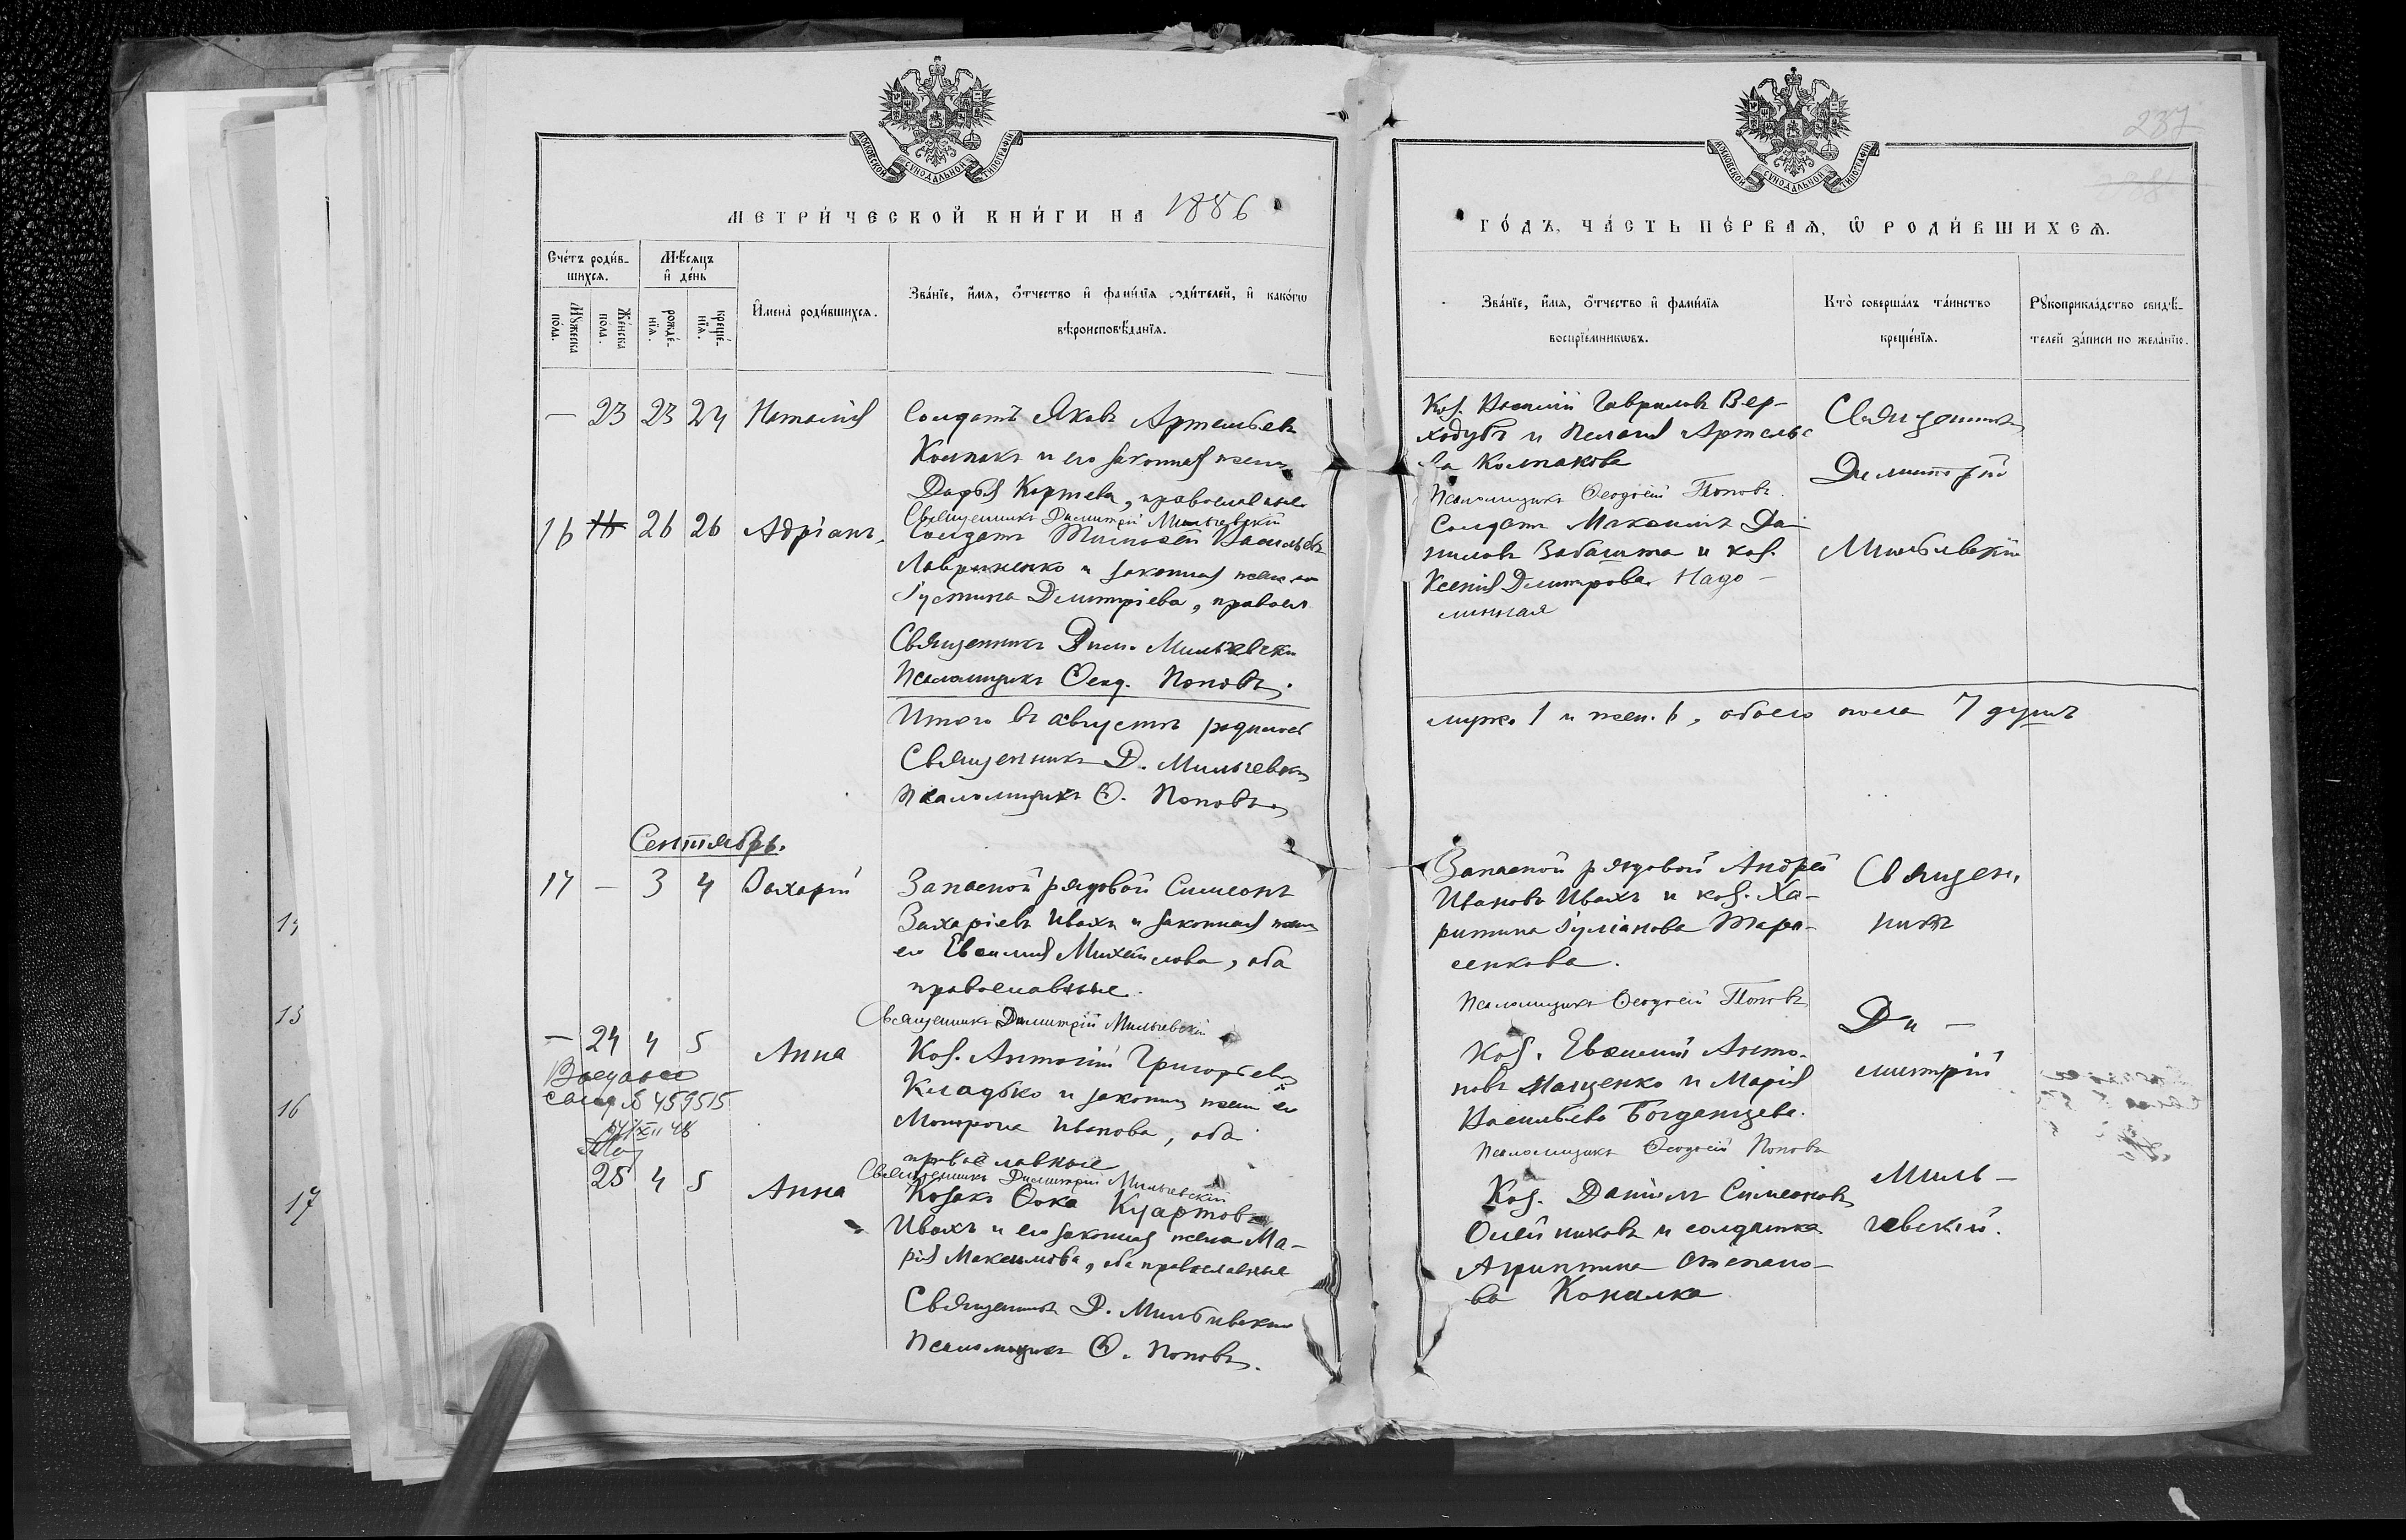 237
МОСКОВСКОЙ СѴНОДАЛЬНОЙ ТИПОГРАФІИ
МОСКОВСКОЙ СѴНОДАЛЬНОЙ ТИПОГРАФІИ
МЕТРИ́ЧЕСКОЙ КНИ́ГИ НА 1886
ГО́ДЪ, ЧА́СТЬ ПЕ́РВАЯ, Ѡ РОДИ́ВШИХСЯ.
Сче́тъ роди́в-
шихся.
Мꙋжеска
по́ла.
Же́нска
по́ла.
Мѣ́сяцъ
и҆ де́нь
рожде́-
нїя.
креще́-
нїя.
И҆мена̀ роди́вшихся.
Зва́нїе, и҆́мя, ѻ҆́тчество и҆ фами́лїя роди́телей, и҆ како́гѡ
вѣроисповѣ́данїя.
Зва́нїе, и҆́мя, ѻ҆́тчество и҆ фами́лїя
воспрїе́мникѡвъ.
Кто̀ соверша́лъ та́инство
креще́нїя.
Рꙋкоприкла́дство свидѣ́-
телей за́писи по жела́нїю.
— 23 23 24 Наталія
Солдатъ Яковъ Артемьевъ
Колпакъ и его законная жена
Дарья Карпева, православные
Священникъ Димитрій Мильчевскій
Коз. Василій Гавриловъ Вер-
ходубъ и Пелагія Артемье
ва Колпакова
Псаломщикъ Ѳеодосій Поповъ.
Священникъ
Димитрій
Мильчевскій
16 26 26 Адріанъ
Солдатъ Тимофей Васильевъ
Лавриненко и законная жена его
Іустина Дмитріева, правосл
Священникъ Дим. Мильчевскій
Псаломщикъ Ѳеод. Поповъ.
Солдатъ Максимъ Да-
ниловъ Забашта и коз.
Ксенія Дмитрова Надо-
линная
Итого въ августѣ родилось
муж. 1 и жен. 6, обоего пола 7 душъ
Священникъ Д. Мильчевскій
Псаломщикъ Ѳ. Поповъ
Сентябрь.
17 — 3 4 Захарій
Запасной рядовой Симеонъ
Захаріевъ Ивахъ и законная жена
его Евфимія Михайлова, оба
православные.
Священникъ Димитрій Мильчевскій
Запасной рядовой Андрей
Ивановъ Ивахъ и коз. Ха-
ритина Іуліанова Тара-
сенкова.
Псаломщикъ Ѳеодосій Поповъ
Священ.
никъ
Ди-
митрій
Миль-
чевскій.
— 24 4 5 Анна
№ 459515
Коз. Антоній Григорьевъ
Кладько и законная жена его
Митрона Иванова, оба
православные
Священникъ Димитрій Мильчевскій
Коз. Евфимій Анто-
новъ Мащенко и Марія
Васильева Богданцева.
Псаломщикъ Ѳеодосій Поповъ
25 4 5 Анна
Козакъ Ѳока
Ивахъ и его законная жена Ма-
рія Максимова, оба православные
Священникъ Д. Мильчевскій
Псаломщикъ Ѳ. Поповъ.
Коз. Даніилъ Симеоновъ
Олейниковъ и солдатка
Агриппина Степано-
ва Копалка
15
16
17